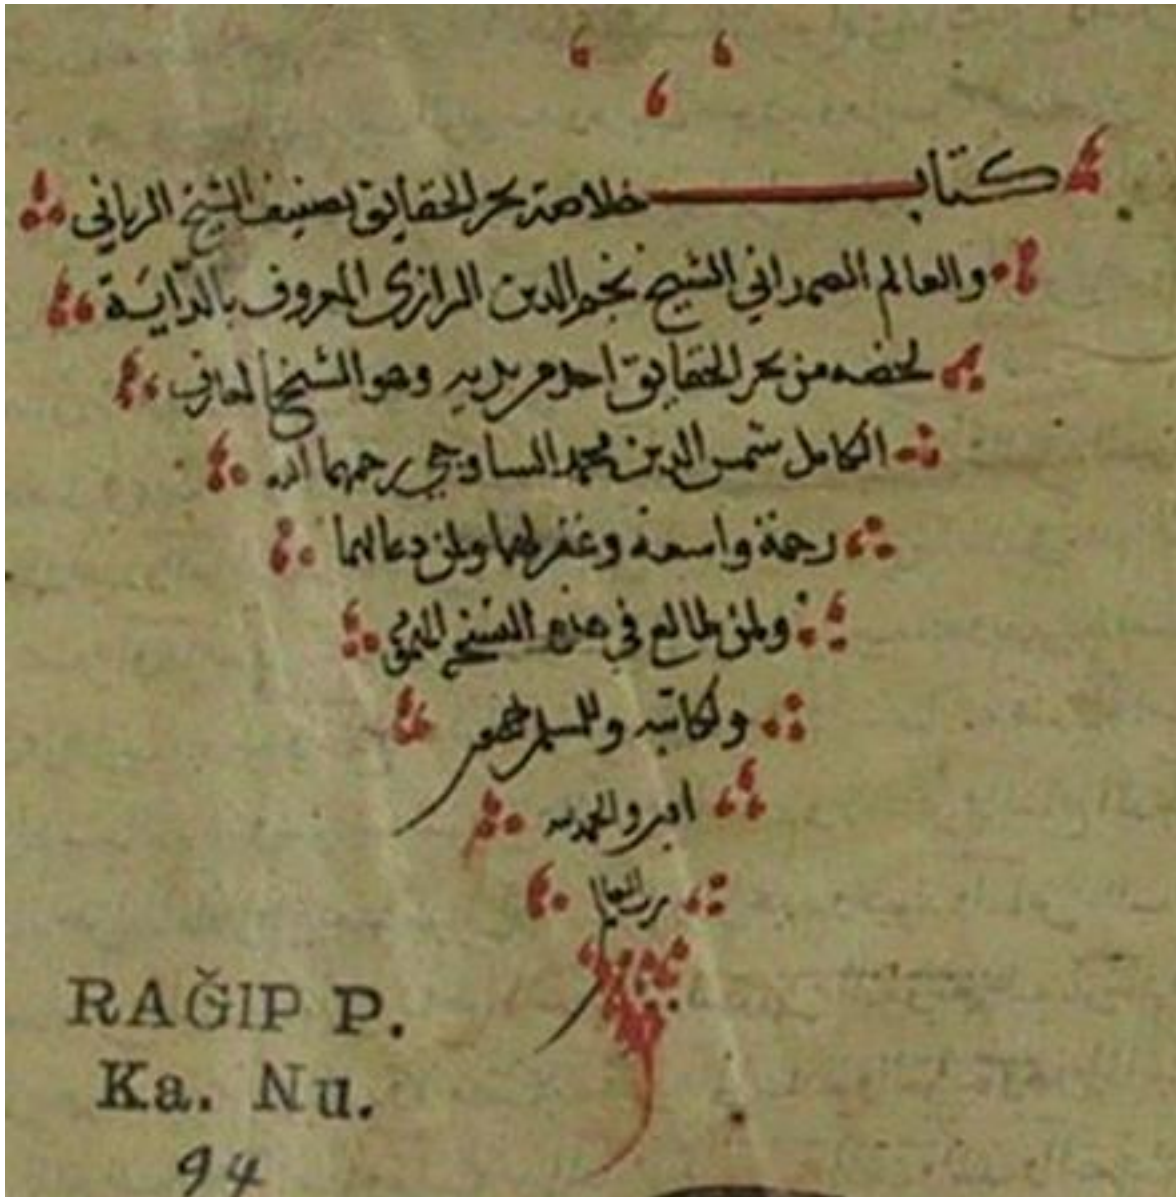 كتاب خلاصة بحر الحقايق تصنيف الشيخ الرباني
والعالم الصمداني الشيخ نجم الدين الرازى المعروف بالدَّايَة
لخصه من بحر الحقايق احد مريديه وهو الشيخ العارف
الكامل شمس الدين محمد الساوجي رحمهما الله
رحمة واسعة وغفر لهما ولمن دعا لهما
ولمن طالع في هذه النسخ
ولكاتبه وللمسلمين
امين والحمد لله
رب العالمين
RAĞIP P.
Ka. Nu.
94